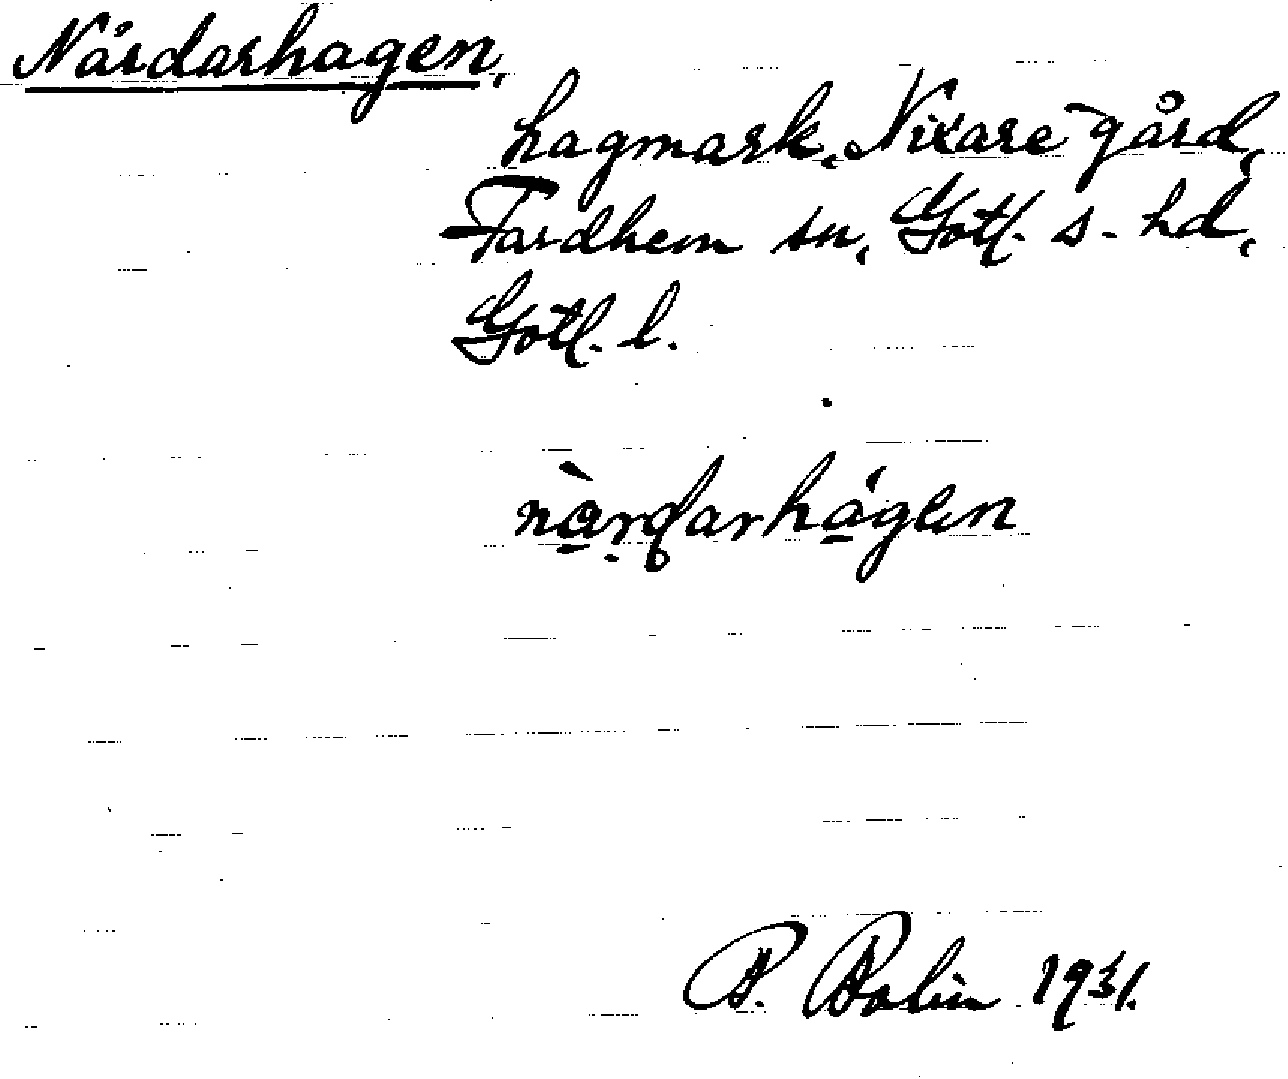 Nårdarhagen,
hagmark, Nixare gård,
Fardhem sn, Gotl. s. hd,
Gotl. l.
nàrdarhágen
P. Bolin 1931.